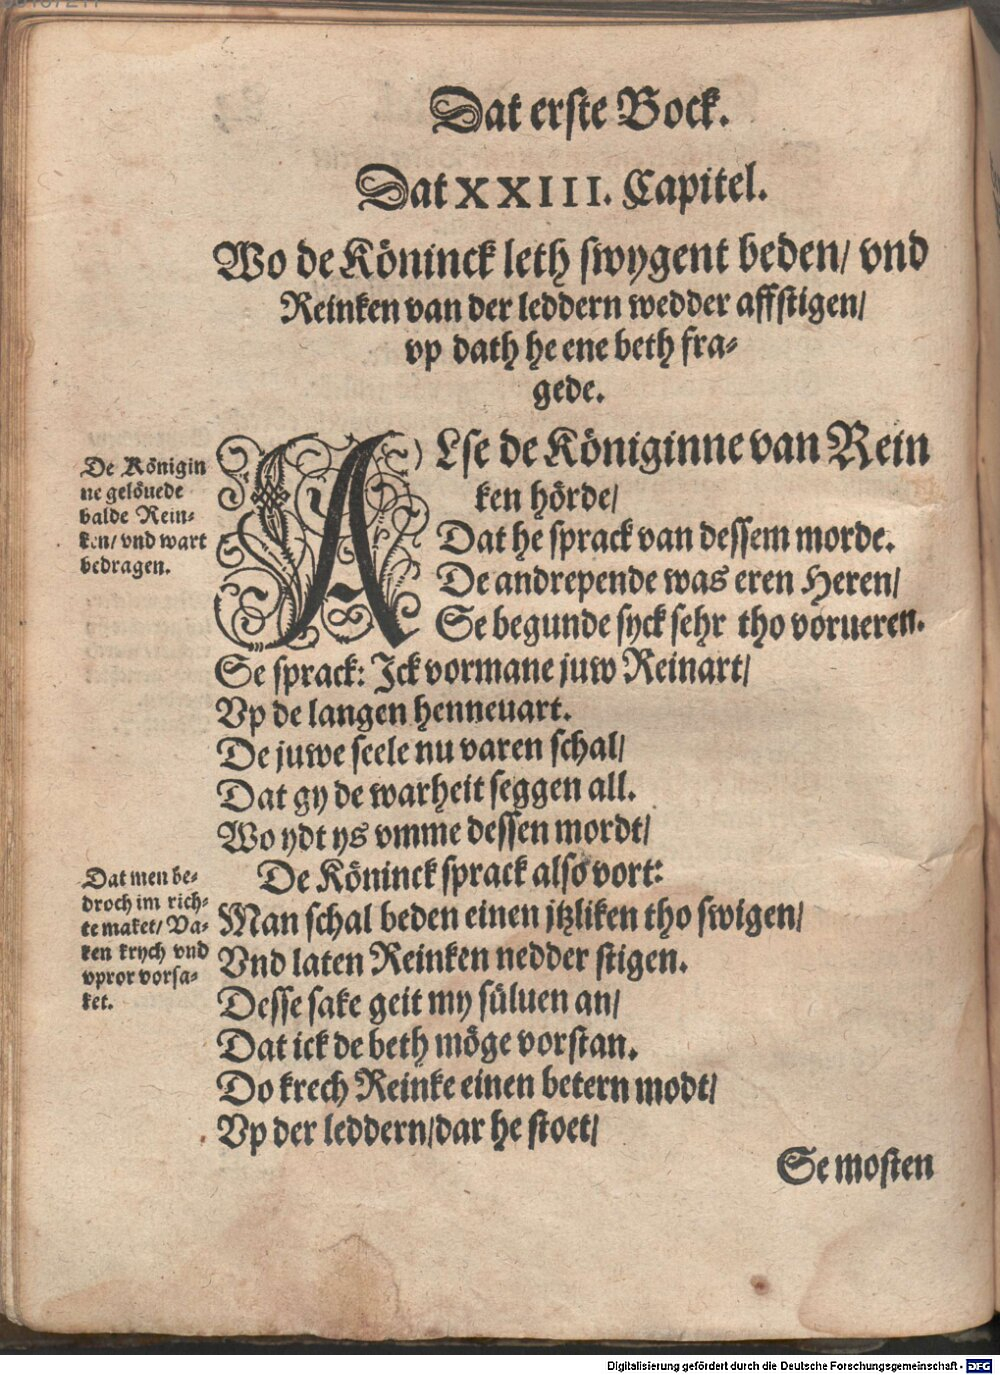 Dat erste Bock.
Dat XXIII. Capitel.
Wo de Köninck leth swygent beden/ vnd
Reinken van der leddern wedder affstigen/
vp dath he ene beth fra-
gede.
De Königin
ne gelöuede
balde Rein-
ken/ vnd wart
bedragen.
ALse de Königinne van Rein
ken hörde/
Dat he sprack van dessem morde.
De andrepende was eren Heren/
Se begunde syck sehr tho vorueren.
Se sprack: Ick vormane juw Reinart/
Vp de langen henneuart.
De juwe seele nu varen schal/
Dat gy de warheit seggen all.
Wo ydt ys vmme dessen mordt/
De Köninck sprack also vort:
Dat men be-
droch im rich-
te maket/ Va-
ken krych vnd
vpror vorsa-
ket.
Man schal beden einen jtzliken tho swigen/
Vnd laten Reinken nedder stigen.
Desse sake geit my süluen an/
Dat ick de beth möge vorstan.
Do krech Reinke einen betern modt/
Vp der leddern/dar he stoet/
Se mosten
Digitalisierung gefördert durch die Deutsche Forschungsgemeinschaft - DFG